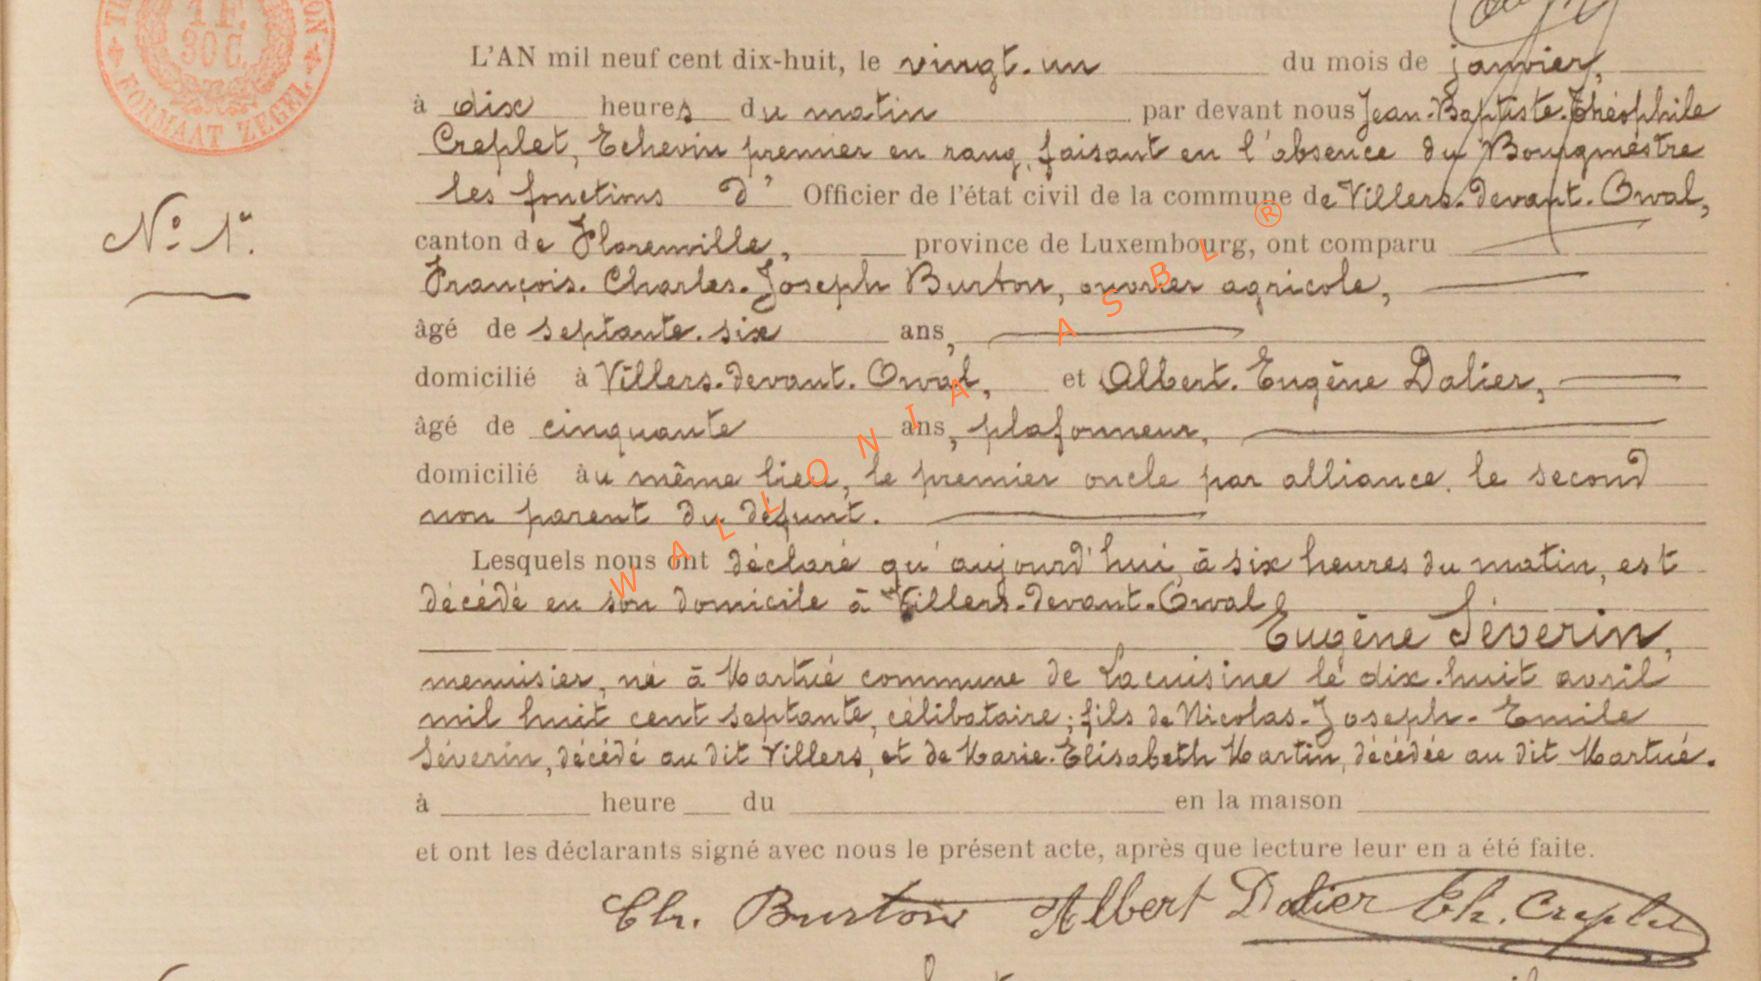 1 F.
30 C.
FORMAAT ZEGEL
L'AN mil neuf cent dix-huit, le vingt-un du mois de janvier,
à dix heures du matin par devant nous Jean-Baptiste-Théophile
Creplet, Echevin premier en rang, faisant en l'absence du Bourgmestre
les fonctions d' Officier de l'état civil de la commune de Villers-devant-Orval,
N° 1r.
canton de Florenville, province de Luxembourg, ont comparu
François-Charles-Joseph Burton, ouvrier agricole,
âgé de septante-six ans,
domicilié à Villers-devant-Orval, et Albert-Eugène Dalier,
âgé de cinquante ans, plafonneur,
domicilié au même lieu, le premier oncle par alliance, le second
non parent du défunt.
Lesquels nous ont déclaré qu'aujourd'hui, à six heures du matin, est
décédé en son domicile à Villers-devant-Orval,
Eugène Séverin,
menuisier, né à Martué commune de Lacuisine le dix-huit avril
mil huit cent septante, célibataire; fils de Nicolas-Joseph-Emile
Séverin, décédé au dit Villers, et de Marie-Elisabeth Martin, décédée au dit Martué.
à heure du en la maison
et ont les déclarants signé avec nous le présent acte, après que lecture leur en a été faite.
Ch. Burton Albert Dalier Th. Creplet
WALLONIA ASBL ®